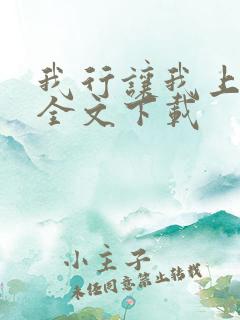 我行讓我上
全文下載
小主子
未经同意禁止转载